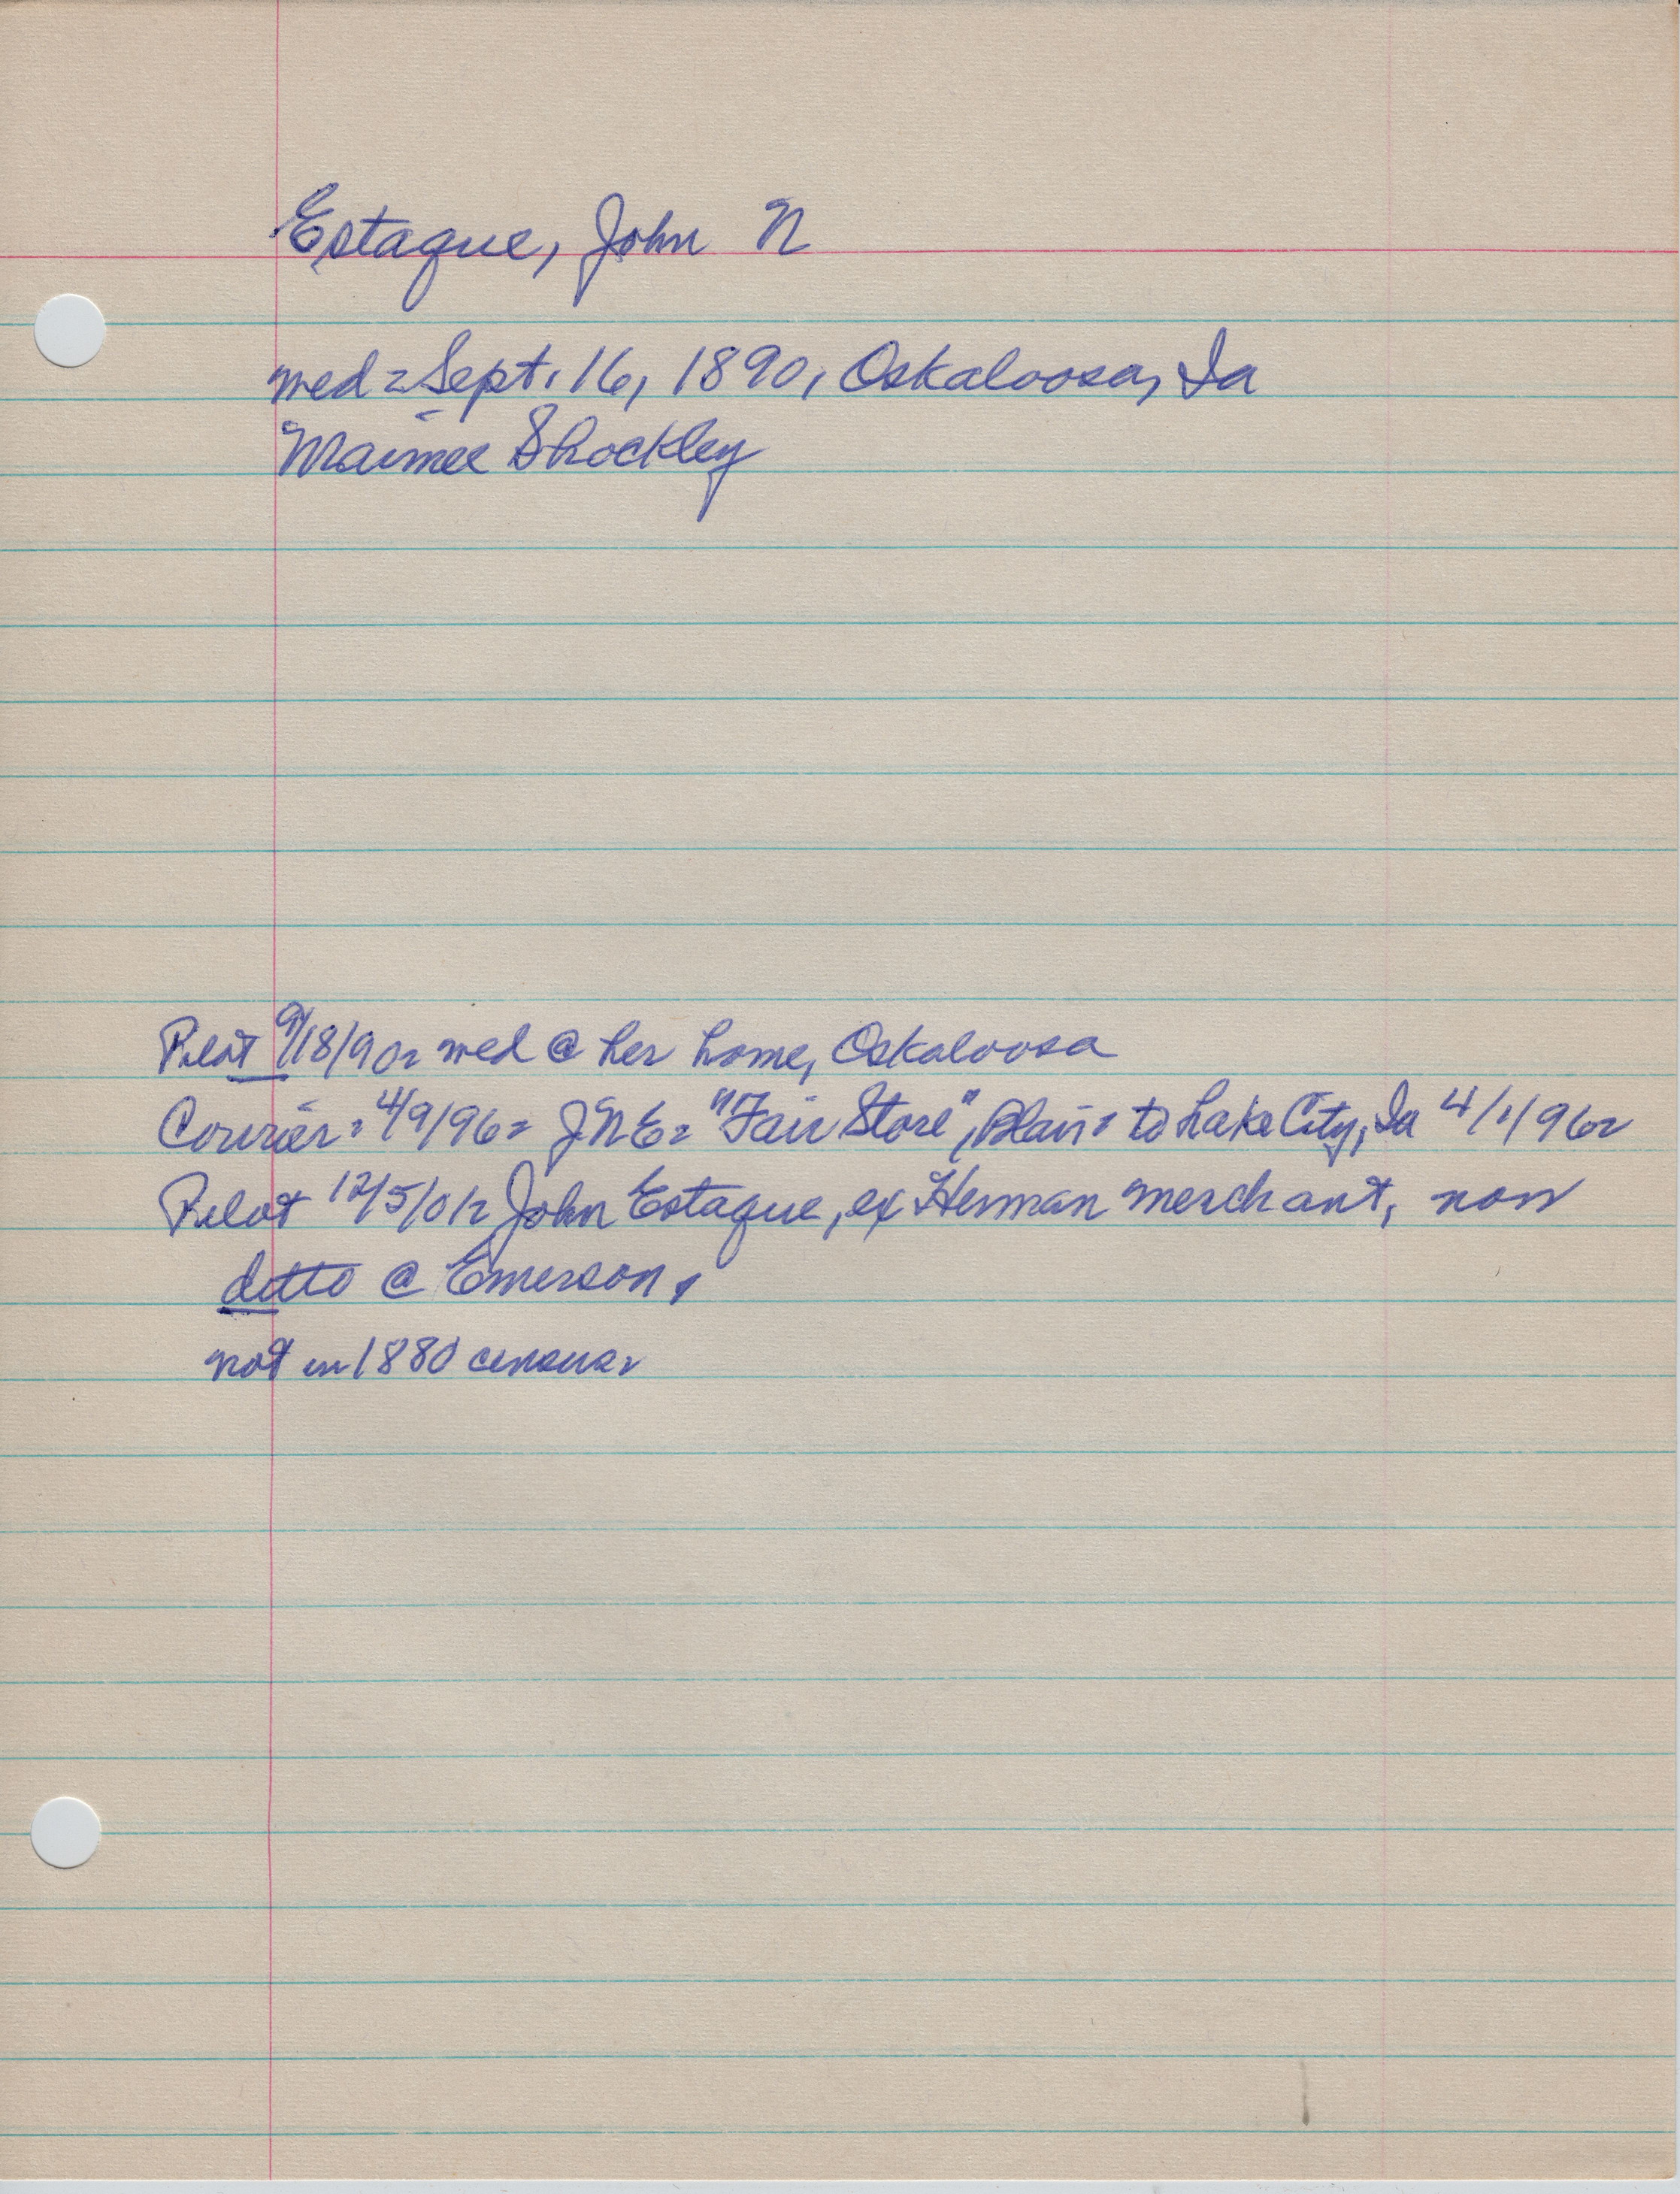 Estaque, John N
wed = Sept. 16, 1890, Oskaloosa, Ia
Maimee Shockley
Pilot 9/18/90= wed @ her home, Oskaloosa
Courier: 4/9/96= JNE= "Fair Store", Blair= to Lake City, Ia 4/1/96=
Pilot 12/5/01= John Estaque, ex Herman merchant, now
ditto @ Emerson.
not in 1880 census=